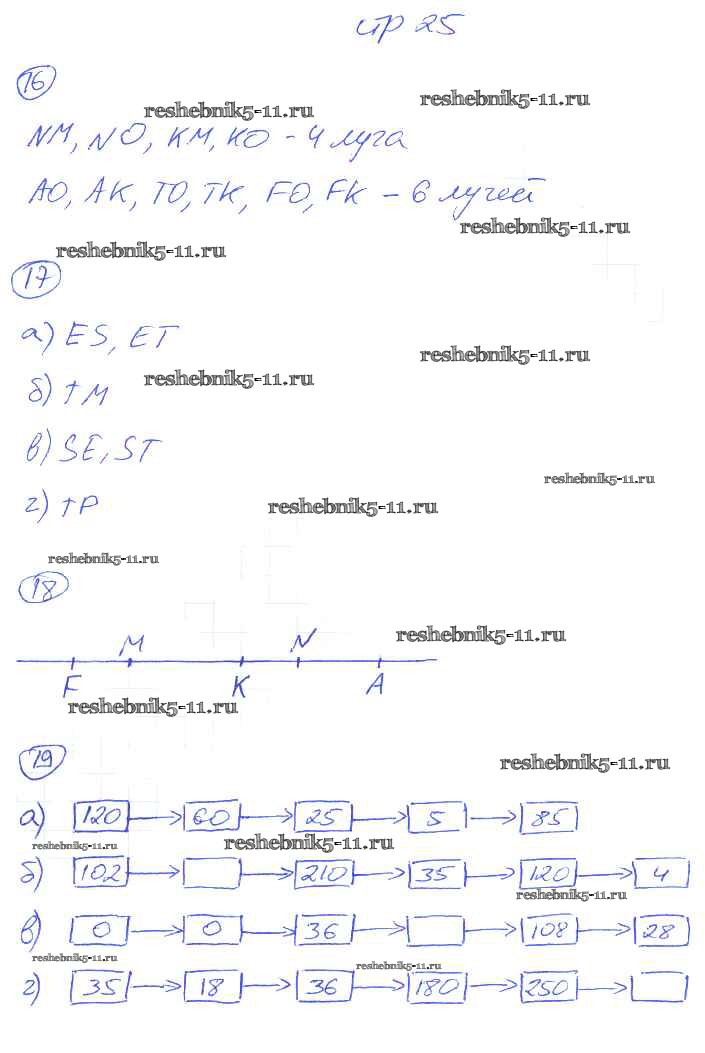 стр 25
16
reshebnik5-11.ru
reshebnik5-11.ru
NM, NO, KM, KO - 4 луча
AO, AK, TO, TK, FO, FK - 6 лучей
reshebnik5-11.ru
reshebnik5-11.ru
17
а) ES, ET
reshebnik5-11.ru
reshebnik5-11.ru
б) TM
в) SE, ST
reshebnik5-11.ru
г) TP
reshebnik5-11.ru
reshebnik5-11.ru
18
reshebnik5-11.ru
M N
F K A
reshebnik5-11.ru
19
reshebnik5-11.ru
а) 120 60 25 5 85
reshebnik5-11.ru
reshebnik5-11.ru
б) 102 210 35 120 4
reshebnik5-11.ru
в) 0 0 36 108 28
reshebnik5-11.ru
reshebnik5-11.ru
г) 35 18 36 180 250